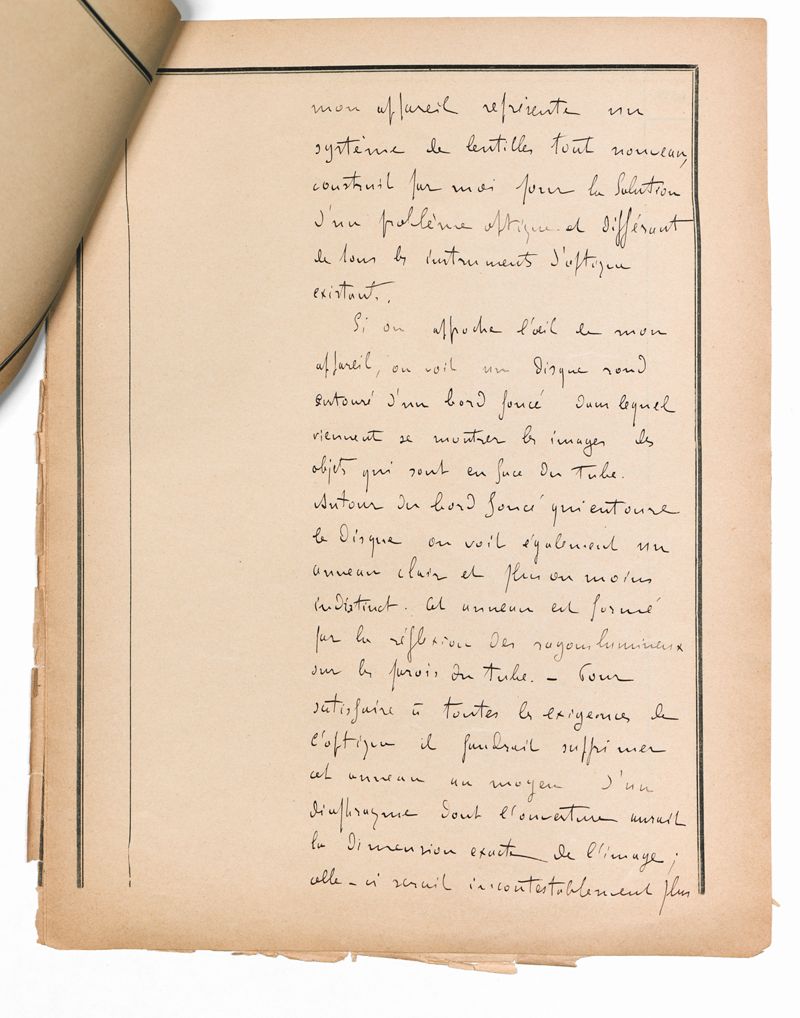 mon appareil représente un
système de lentilles tout nouveau,
construit par moi pour la Solution
d'un problème optique et différant
de tous les instruments d'optique
existants.
Si on approche l'œil de mon
appareil, on voit un disque rond
entouré d'un bord foncé dans lequel
viennent se montrer les images des
objets qui sont en face du tube.
Autour du bord foncé qui entoure
le disque on voit également un
anneau clair et plus ou moins
indistinct. Cet anneau est formé
par la réflexion des rayons lumineux
sur les parois du tube. — Pour
satisfaire à toutes les exigences de
l'optique il faudrait supprimer
cet anneau au moyen d'un
diaphragme dont l'ouverture aurait
la dimension exacte de l'image ;
celle-ci serait incontestablement plus